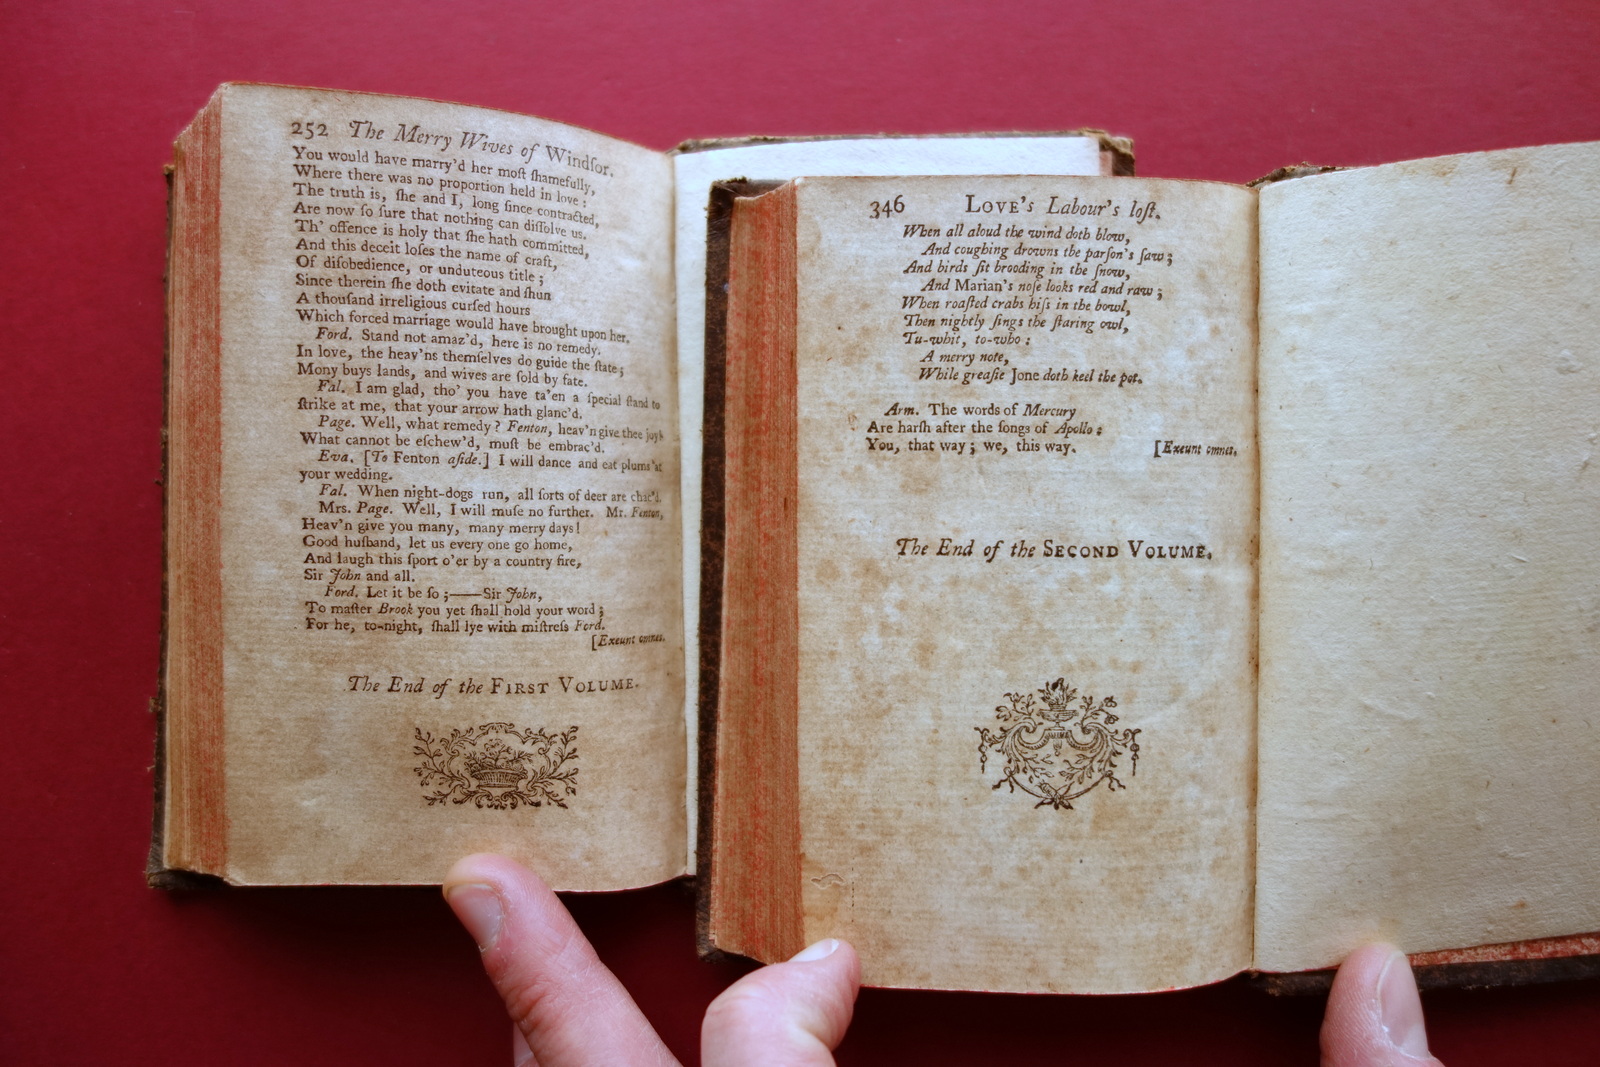 252 The Merry Wives of Windſor.
You would have marry'd her moſt ſhamefully,
Where there was no proportion held in love:
The truth is, ſhe and I, long ſince contracted,
Are now ſo ſure that nothing can diſſolve us.
Th' offence is holy that ſhe hath committed,
And this deceit loſes the name of craft,
Of diſobedience, or unduteous title;
Since therein ſhe doth evitate and ſhun
A thouſand irreligious curſed hours
Which forced marriage would have brought upon her.
Ford. Stand not amaz'd, here is no remedy.
In love, the heav'ns themſelves do guide the ſtate;
Mony buys lands, and wives are ſold by fate.
Fal. I am glad, tho' you have ta'en a ſpecial ſtand to
ſtrike at me, that your arrow hath glanc'd.
Page. Well, what remedy? Fenton, heav'n give thee joy!
What cannot be eſchew'd, muſt be embrac'd.
Eva. [To Fenton aſide.] I will dance and eat plums at
your wedding.
Fal. When night-dogs run, all ſorts of deer are chac'd.
Mrs. Page. Well, I will muſe no further. Mr. Fenton,
Heav'n give you many, many merry days!
Good huſband, let us every one go home,
And laugh this ſport o'er by a country fire,
Sir John and all.
Ford. Let it be ſo;——Sir John,
To maſter Brook you yet ſhall hold your word;
For he, to-night, ſhall lye with miſtreſs Ford.
[Exeunt omnes.
The End of the FIRST VOLUME.
346 LOVE's Labour's loſt.
When all aloud the wind doth blow,
And coughing drowns the parſon's ſaw;
And birds ſit brooding in the ſnow,
And Marian's noſe looks red and raw;
When roaſted crabs hiſs in the bowl,
Then nightly ſings the ſtaring owl,
Tu-whit, to-who:
A merry note,
While greaſie Jone doth keel the pot.
Arm. The words of Mercury
Are harſh after the ſongs of Apollo:
You, that way; we, this way. [Exeunt omnes.
The End of the SECOND VOLUME.